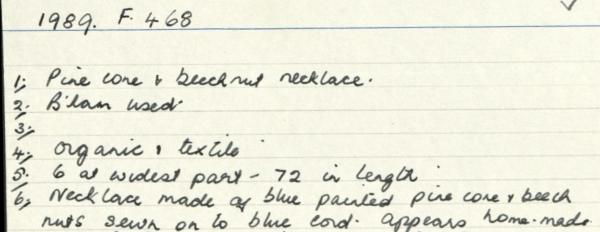 1989. F. 468
1; Pine cone & beechnut necklace.
2. B'ham used.
3;
4; organic & textile
5. 6 at widest part - 72 in length
6, Necklace made of blue painted pine cone & beech
nuts sewn on to blue cord. appears home-made